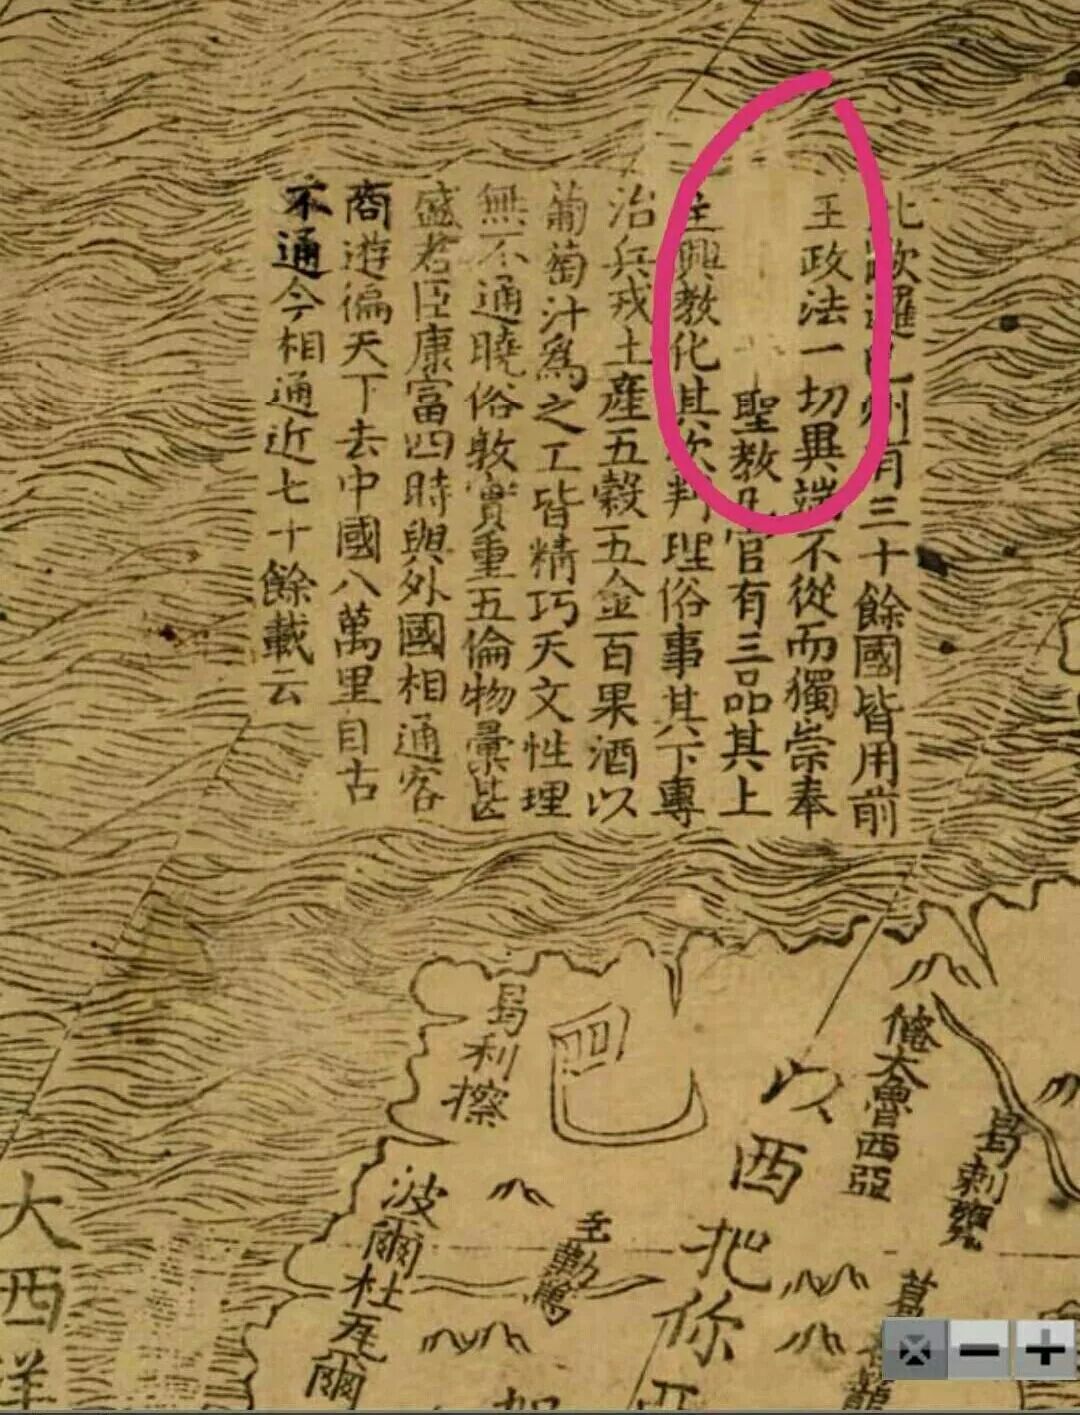 此歐邏巴州有三十餘國皆用前
王政法一切異端不從而獨崇奉
聖教凡官有三品其上
主興教化其次判理俗事其下專
治兵戎土產五穀五金百果酒以
葡萄汁為之工皆精巧天文性理
無不通曉俗敦實重五倫物彙甚
盛君臣康富四時與外國相通客
商遊徧天下去中國八萬里自古
不通今相通近七十餘載云
曷利擦
以西把你亞
大魯西亞
波爾杜瓦爾
大西洋